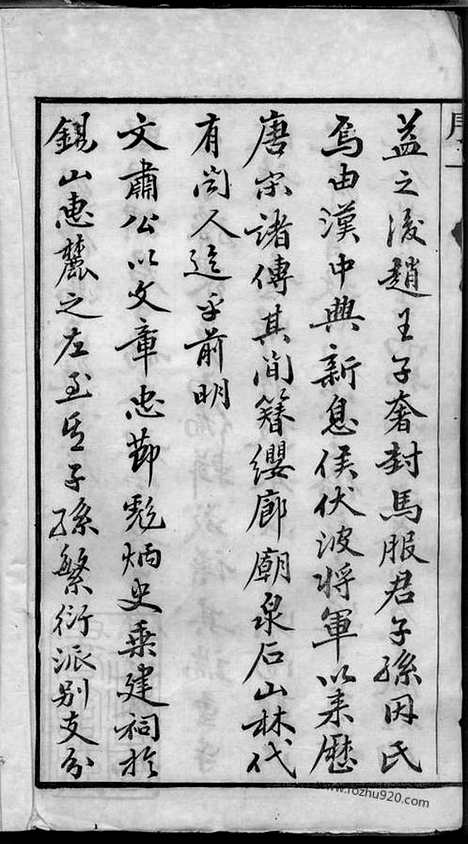 益之後趙王子奢封馬服君子孫因氏
焉由漢中興新息侯伏波將軍以來歷
唐宋諸傳其間簪纓廊廟泉石山林代
有聞人迨乎前明
文肅公以文章忠節彪炳史乘建祠於
錫山惠麓之左至是子孫繁衍派別支分
www.rozhu920.com